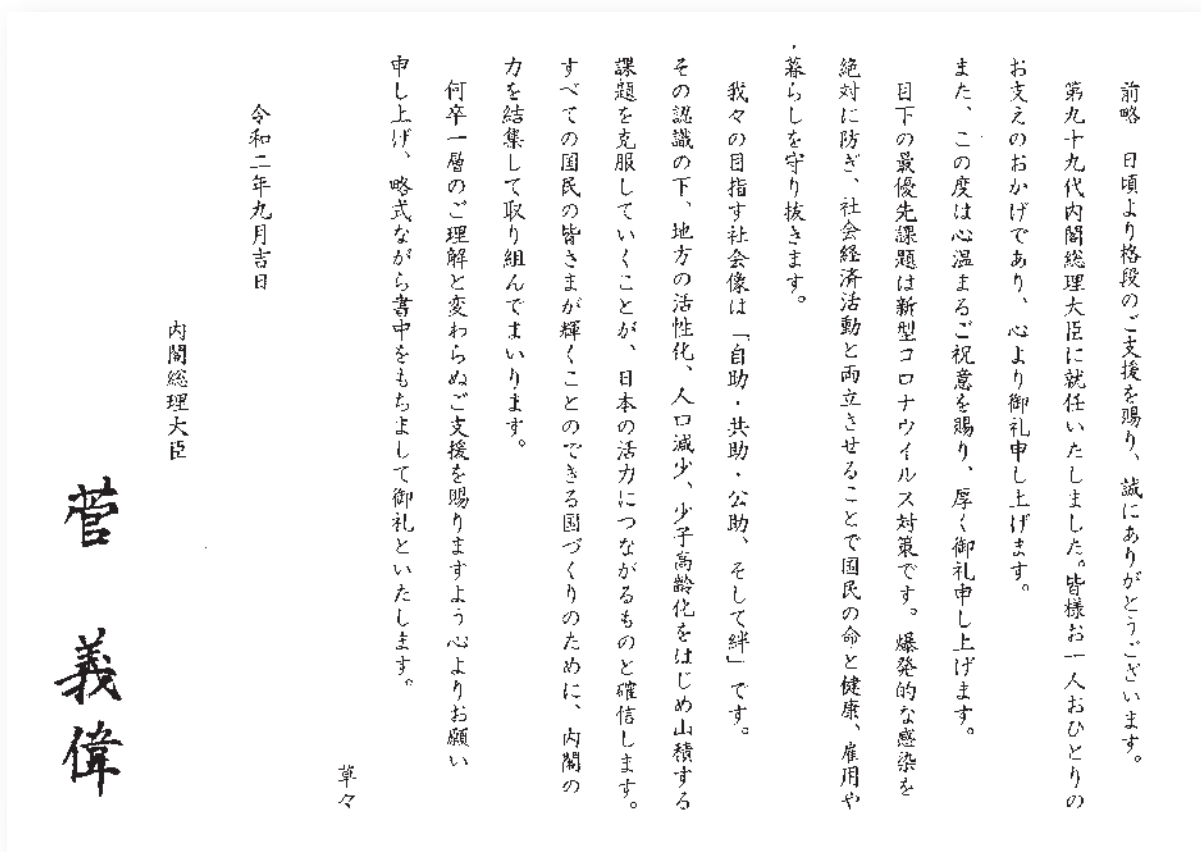 前略　日頃より格段のご支援を賜り、誠にありがとうございます。
第九十九代内閣総理大臣に就任いたしました。皆様お一人おひとりの
お支えのおかげであり、心より御礼申し上げます。
また、この度は心温まるご祝意を賜り、厚く御礼申し上げます。
目下の最優先課題は新型コロナウイルス対策です。爆発的な感染を
絶対に防ぎ、社会経済活動と両立させることで国民の命と健康、雇用や
暮らしを守り抜きます。
我々の目指す社会像は「自助・共助・公助、そして絆」です。
その認識の下、地方の活性化、人口減少、少子高齢化をはじめ山積する
課題を克服していくことが、日本の活力につながるものと確信します。
すべての国民の皆さまが輝くことのできる国づくりのために、内閣の
力を結集して取り組んでまいります。
何卒一層のご理解と変わらぬご支援を賜りますよう心よりお願い
申し上げ、略式ながら書中をもちまして御礼といたします。
草々
令和二年九月吉日
内閣総理大臣
菅　義偉